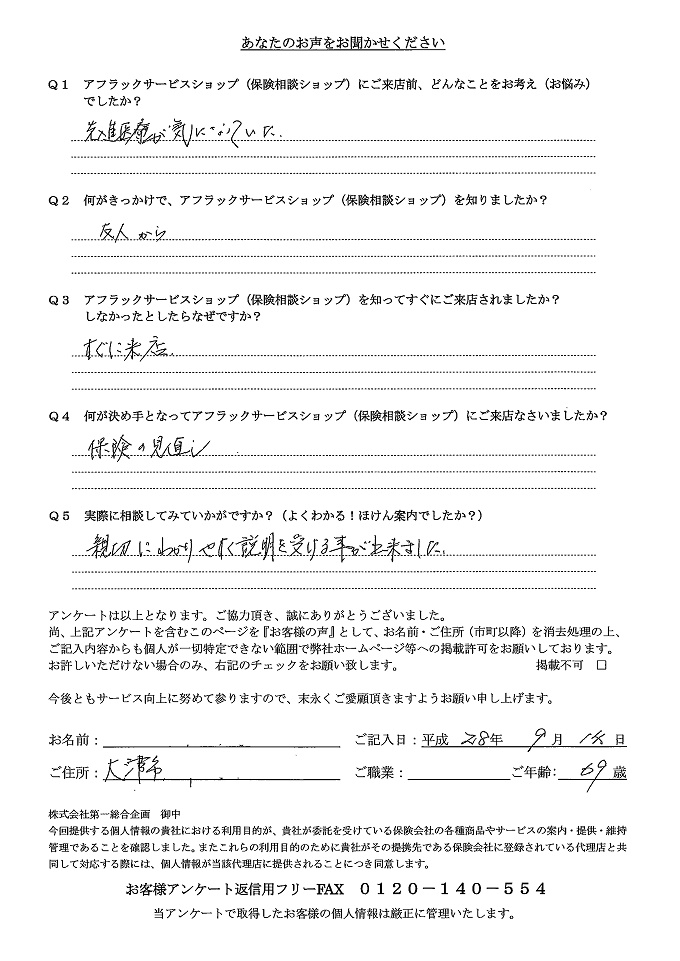 あなたのお声をお聞かせください
Q1 アフラックサービスショップ（保険相談ショップ）にご来店前、どんなことをお考え（お悩み）
でしたか？
先進医療が気になっていた.
Q2 何がきっかけで、アフラックサービスショップ（保険相談ショップ）を知りましたか？
友人から
Q3 アフラックサービスショップ（保険相談ショップ）を知ってすぐにご来店されましたか？
しなかったとしたらなぜですか？
すぐに来店.
Q4 何が決め手となってアフラックサービスショップ（保険相談ショップ）にご来店なさいましたか？
保険の見直し
Q5 実際に相談してみていかがですか？（よくわかる！ほけん案内でしたか？）
親切にわかりやすく説明を受ける事が出来ました.
アンケートは以上となります。ご協力頂き、誠にありがとうございました。
尚、上記アンケートを含むこのページを『お客様の声』として、お名前・ご住所（市町以降）を消去処理の上、
ご記入内容からも個人が一切特定できない範囲で弊社ホームページ等への掲載許可をお願いしております。
お許しいただけない場合のみ、右記のチェックをお願い致します。 掲載不可 □
今後ともサービス向上に努めて参りますので、末永くご愛顧頂きますようお願い申し上げます。
お名前： ご記入日：平成 28年 9月 日
ご住所：大津市 ご職業： ご年齢： 69 歳
株式会社第一総合企画 御中
今回提供する個人情報の貴社における利用目的が、貴社が委託を受けている保険会社の各種商品やサービスの案内・提供・維持
管理であることを確認しました。またこれらの利用目的のために貴社がその提携先である保険会社に登録されている代理店と共
同して対応する際には、個人情報が当該代理店に提供されることにつき同意します。
お客様アンケート返信用フリーFAX 0120－140－554
当アンケートで取得したお客様の個人情報は厳正に管理いたします。